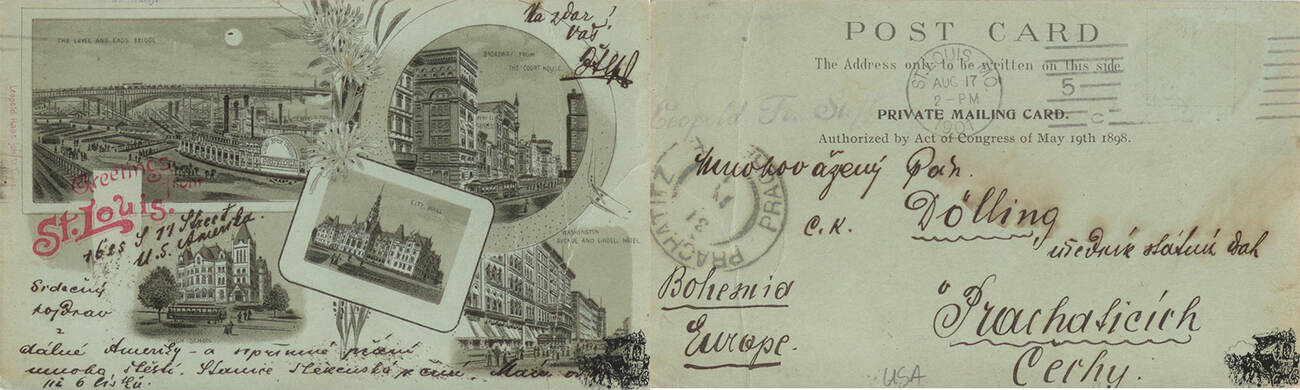 THE LEVEE AND EADS BRIDGE
Greetings
from
St. Louis.
1625 S 11 Street
U.S. Amerika.
Na zdar!
Váš
BROADWAY FROM
THE COURT HOUSE
CITY HALL
WASHINGTON
AVENUE AND LINDELL HOTEL
HIGH SCHOOL
Srdečný
pozdrav
z
dálné Ameriky - a upřímné přání
mnoho štěstí.
POST CARD
The Address only to be written on this side.
PRIVATE MAILING CARD.
Authorized by Act of Congress of May 19th 1898.
ST. LOUIS, MO.
AUG 17
2-PM
1901
5
C
Leopold Fr.
PRACHATITZ
PRACHATICE
31
Mnohovážený Pán.
C.K. Dölling,
úředník státních drah
Bohemia
Prachaticích
Europe.
Čechy.
USA